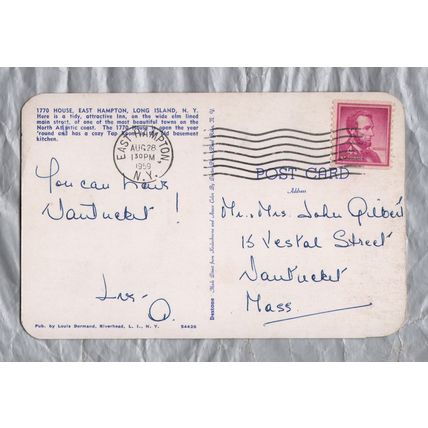 1770 HOUSE, EAST HAMPTON, LONG ISLAND, N. Y.
Here is a tidy, attractive Inn, on the wide elm lined
main street, of one of the most beautiful towns on the
North Atlantic coast. The 1770 House is open the year
'round and has a cozy Tap Room in the old basement
kitchen.
EAST HAMPTON,
AUG 28
130PM
1959
N.Y.
POST CARD
Address
You can have
Nantucket !
Mr. Mrs. John Gilbert
15 Vestal Street
Nantucket
Mass.
Pub. by Louis Dormand, Riverhead, L. I., N. Y.
54426
Dextone
Made Direct from Kodachrome and Ansco Color